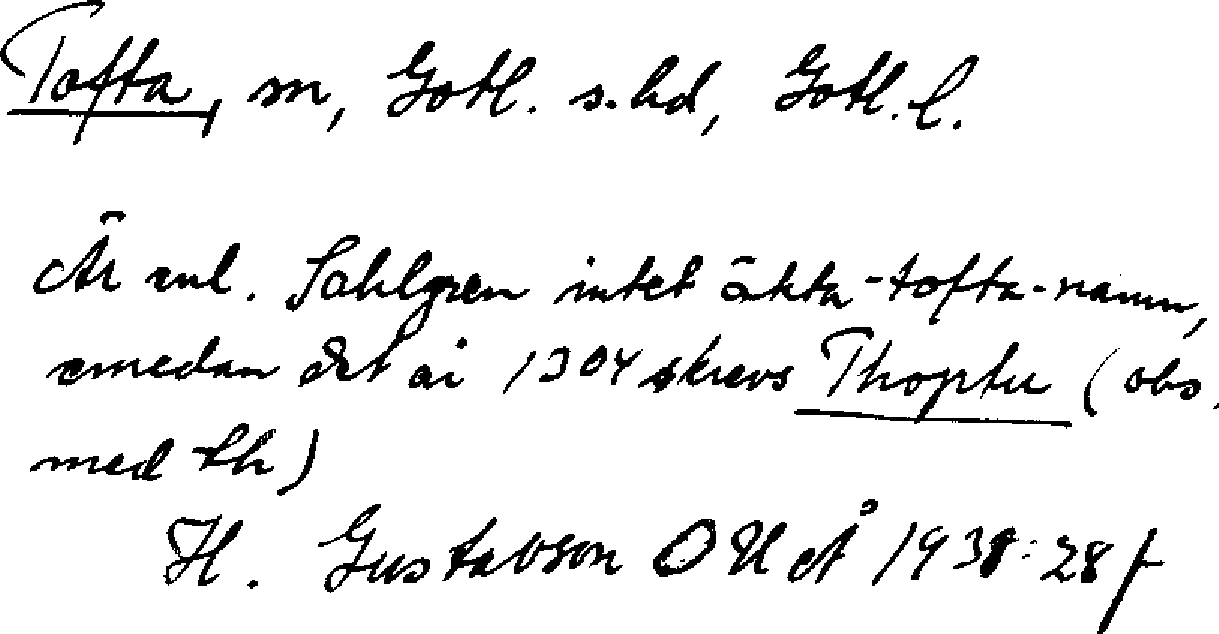 Tofta, sn, Gotl. s. hd, Gotl. l.
Är enl. Sahlgren intet äkta -tofta-namn,
emedan det år 1304 skrevs Thoptu (obs.
med th)
H. Gustavson OUÅ 1938: 28 f